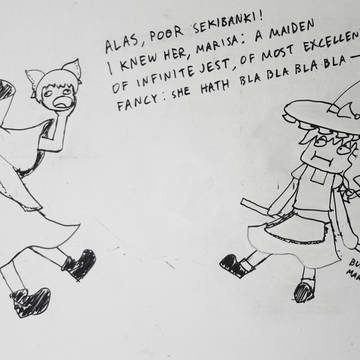 ALAS, POOR SEKIBANKI!
I KNEW HER, MARISA: A MAIDEN
OF INFINITE JEST, OF MOST EXCELLEN
FANCY: SHE HATH BLA BLA BLA BLA—
BU
MAR